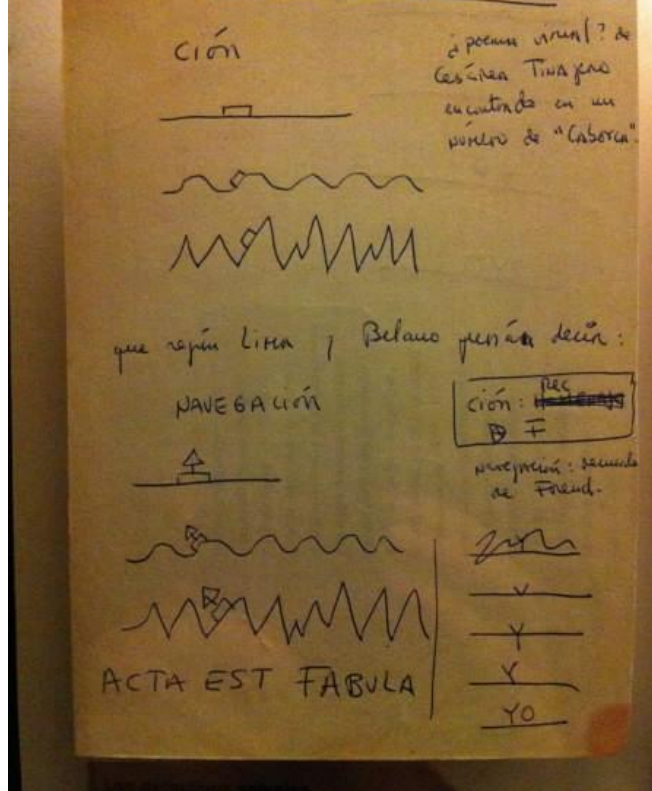 CIÓN
¿poema visual? de
Cesárea Tinajero
encontrado en un
número de "Caborca".
que según Lima y Belano quería decir:
NAVEGACIÓN
ción:
navegación: recuerdo
de Freud.
V
Y
Y
YO
ACTA EST FABULA